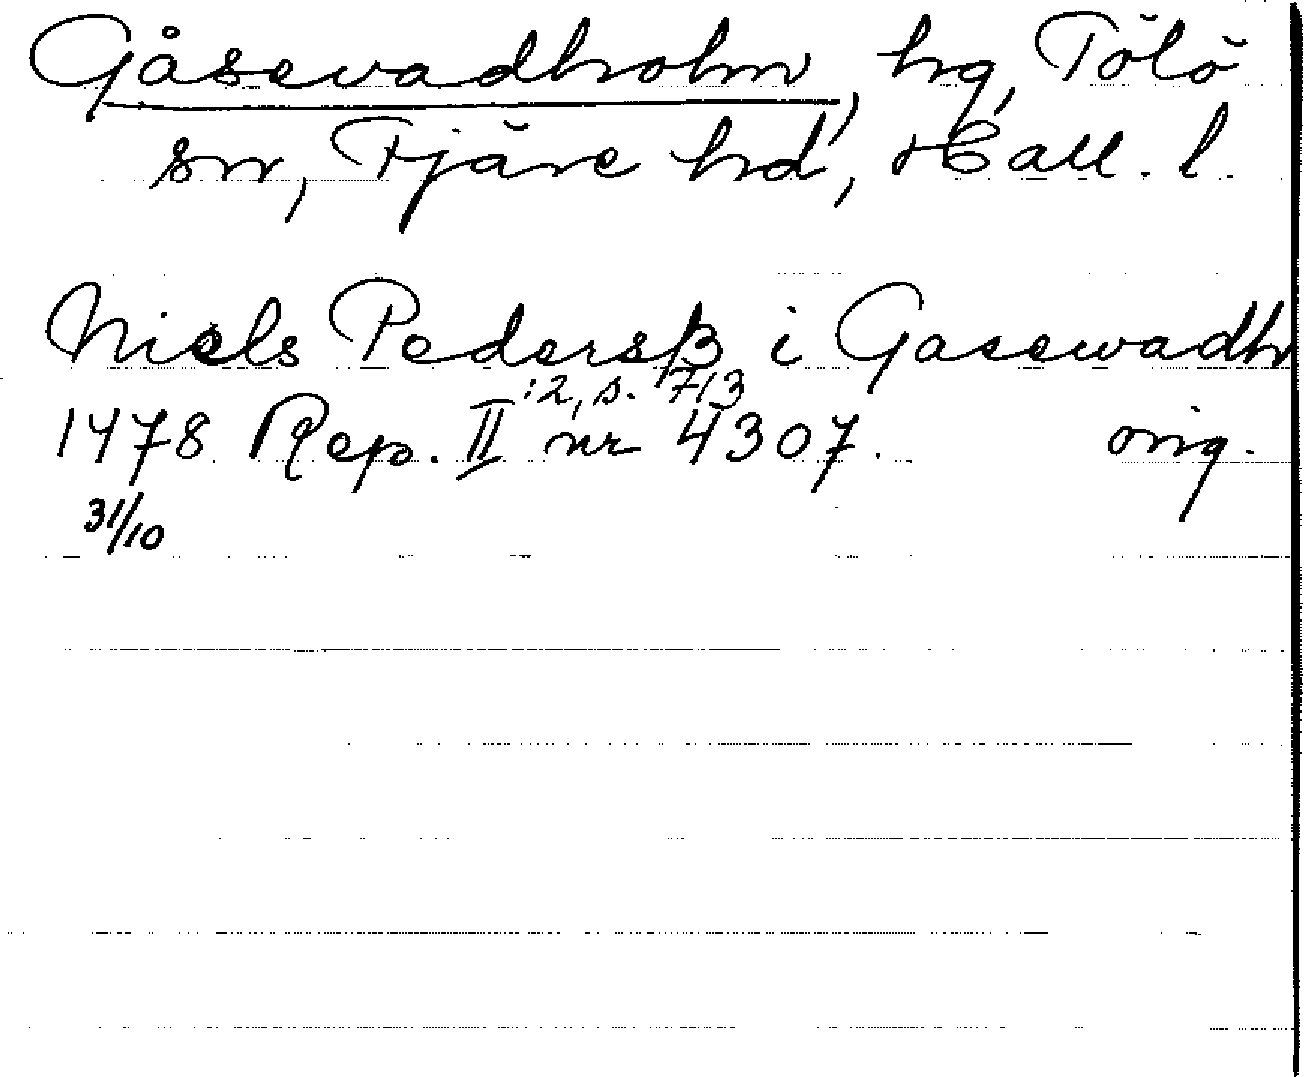 Gåsevadholm, hg, Tölö
sn, Fjäre hd, Hall. l.
Niels Pedersß i Gasewadh
:2, s. 713
1478 Rep. II nr 4307. orig.
31/10